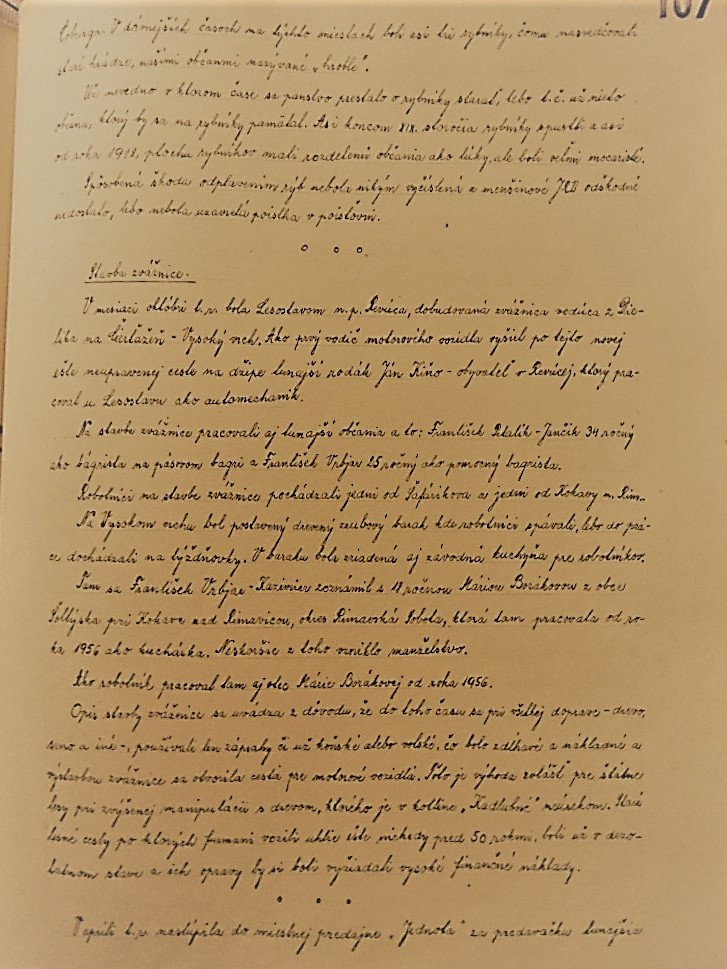 107
Coburga. V dávnejších časoch na týchto miestach boli asi tri rybníky, čomu nasvedčovali
staré hrádze, našimi občanmi nazývané „hroble".
Už nevedno v ktorom čase sa panstvo prestalo o rybníky starať, lebo t.č. už nieto
občana, ktorý by sa na rybníky pamätal. Asi koncom XIX. storočia rybníky spustli a asi
od roku 1918, plochu rybníkov mali rozdelenú občania ako lúky, ale boli veľmi mocaristé.
Spôsobená škoda odplavením rýb nebola nikým vyčíslená a menšinové JRD odškodné
nedostalo, lebo nebola uzavretá poistka v poisťovni.
Stavba zvážnice.
V mesiaci októbri t.r. bola Lesostavom n.p. Revúca, dobudovaná zvážnica vedúca z Die-
lika na - Vysoký vrch. Ako prvý vodič motorového vozidla vyšiel po tejto novej
ešte neupravenej ceste na džípe tunajší rodák Ján Kiňo - obyvateľ v Revúcej, ktorý pra-
coval u Lesostavu ako automechanik.
Na stavbe zvážnice pracovali aj tunajší občania a to: František Petalík - Jančík 34 ročný
ako bágrista na pásovom bagri a František Vrbjar 25 ročný ako pomocný bagrista.
Robotníci na stavbe zvážnice pochádzali jedni od Šafárikova a jedni od Kokavy n. Rim.
Na Vysokom vrchu bol postavený drevený zrubový barak kde robotníci spávali, lebo do prá-
ce dochádzali na týždňovky. V baraku bola zriadená aj závodná kuchyňa pre robotníkov.
Tam sa František Vrbjar - Kazimier zoznámil s 18 ročnou Máriou Borákovou z obce
pri Kokave nad Rimavicou, okres Rimavská Sobota, ktorá tam pracovala od ro-
ku 1956 ako kuchárka. Neskoršie z toho vzniklo manželstvo.
Ako robotník pracoval tam aj otec Márie Borákovej od roku 1956.
Opis stavby zvážnice sa uvádza z dôvodu, že do toho času sa pri všetkej doprave - drevo,
seno a iné -, používali len záprahy či už konské alebo volské, čo bolo zdĺhavé a nákladné a
výstavbou zvážnice sa otvorila cesta pre motorové vozidlá. Toto je výhoda zvlášť pre štátne
lesy pri zvýšenej manipulácii s drevom, ktorého je v kotline „Kadlubné" neúrekom. Staré
lesné cesty po ktorých furmani vozili uhlie ešte niekedy pred 50 rokmi, boli už v dezo-
látnom stave a ich opravy by si boli vyžiadali vysoké finančné náklady.
V apríli t.r. nastúpila do miestnej predajne „Jednota" za predavačku tunajšia